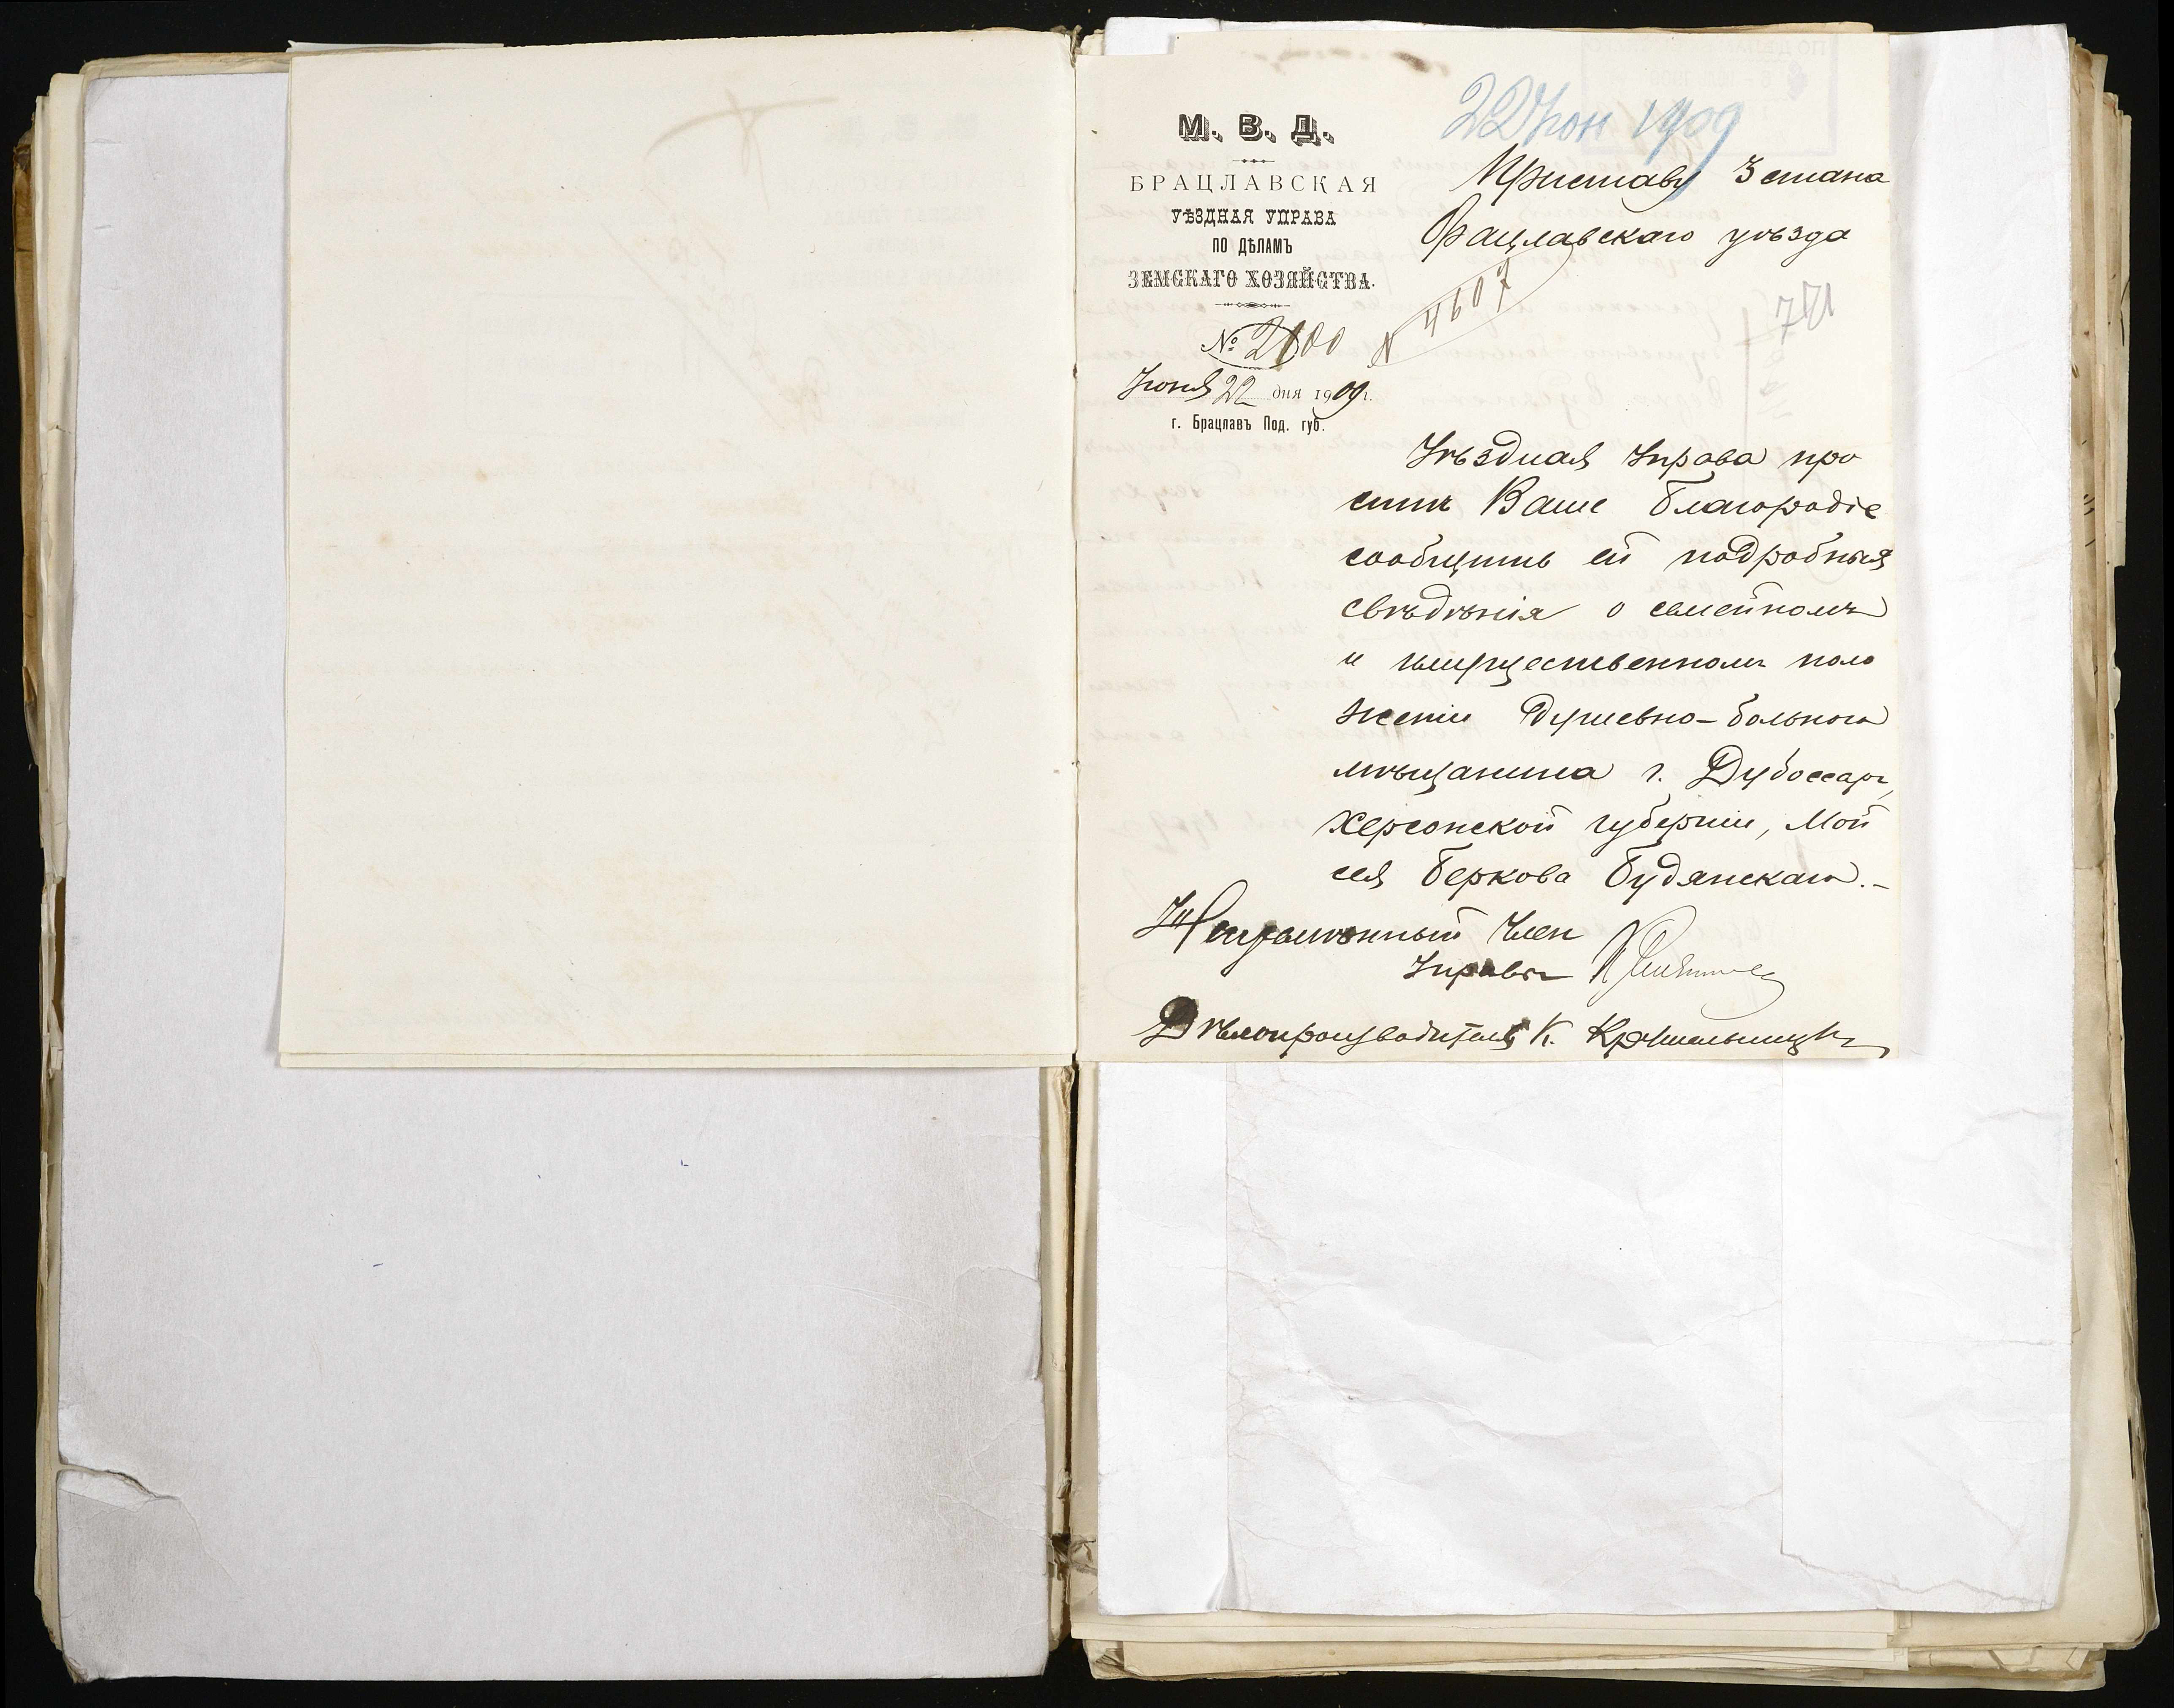 22 Июн 1909
М. В. Д.
БРАЦЛАВСКАЯ
УѢЗДНАЯ УПРАВА
ПО ДѢЛАМЪ
ЗЕМСКАГО ХОЗЯЙСТВА.
№ 2100
Июня 22 дня 1909 г.
г. Брацлавъ Под. губ.
Приставу 3 стана
Брацлавскаго уѣзда
N 4607
Уѣздная Управа про
ситъ Ваше Благородіе
сообщить ей подробныя
свѣдѣнія о семейномъ
и имущественномъ поло
женіи душевно-больного
мѣщанина г. Дубоссаръ,
Херсонской губерніи, Мой
сея Беркова Будянскаго.-
Непремѣнный Член
Управы
Дѣлопроизводитель К.